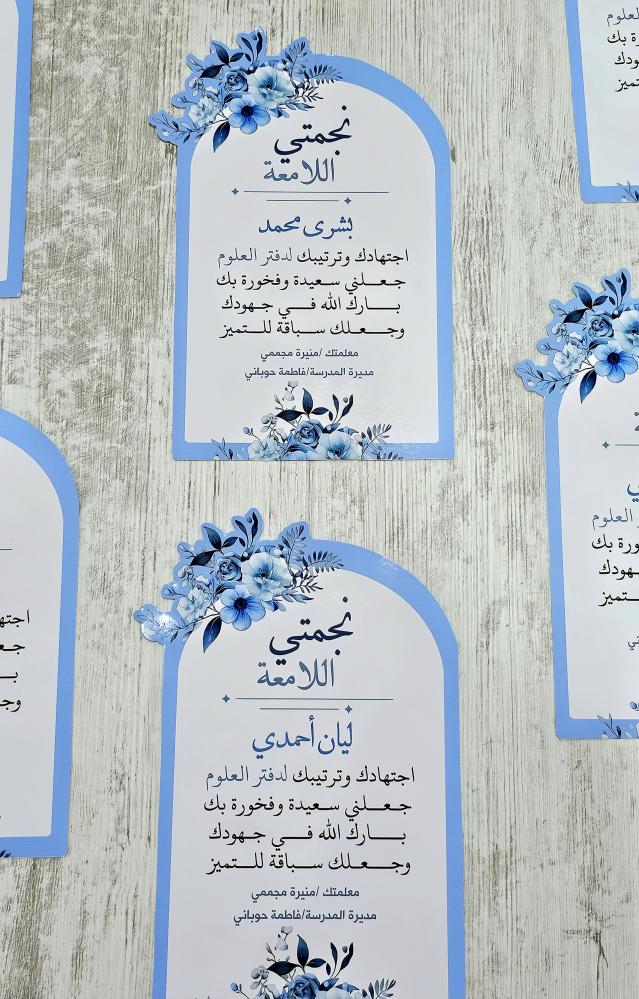 نجمتي
اللامعة
بشرى محمد
اجتهادك وترتيبك لدفتر العلوم
جعلني سعيدة وفخورة بك
بارك الله في جهودك
وجعلك سباقة للتميز
معلمتك /منيرة مجممي
مديرة المدرسة/فاطمة حوباني
نجمتي
اللامعة
ليان أحمدي
اجتهادك وترتيبك لدفتر العلوم
جعلني سعيدة وفخورة بك
بارك الله في جهودك
وجعلك سباقة للتميز
معلمتك /منيرة مجممي
مديرة المدرسة/فاطمة حوباني
العلوم
بك
العلوم
بك